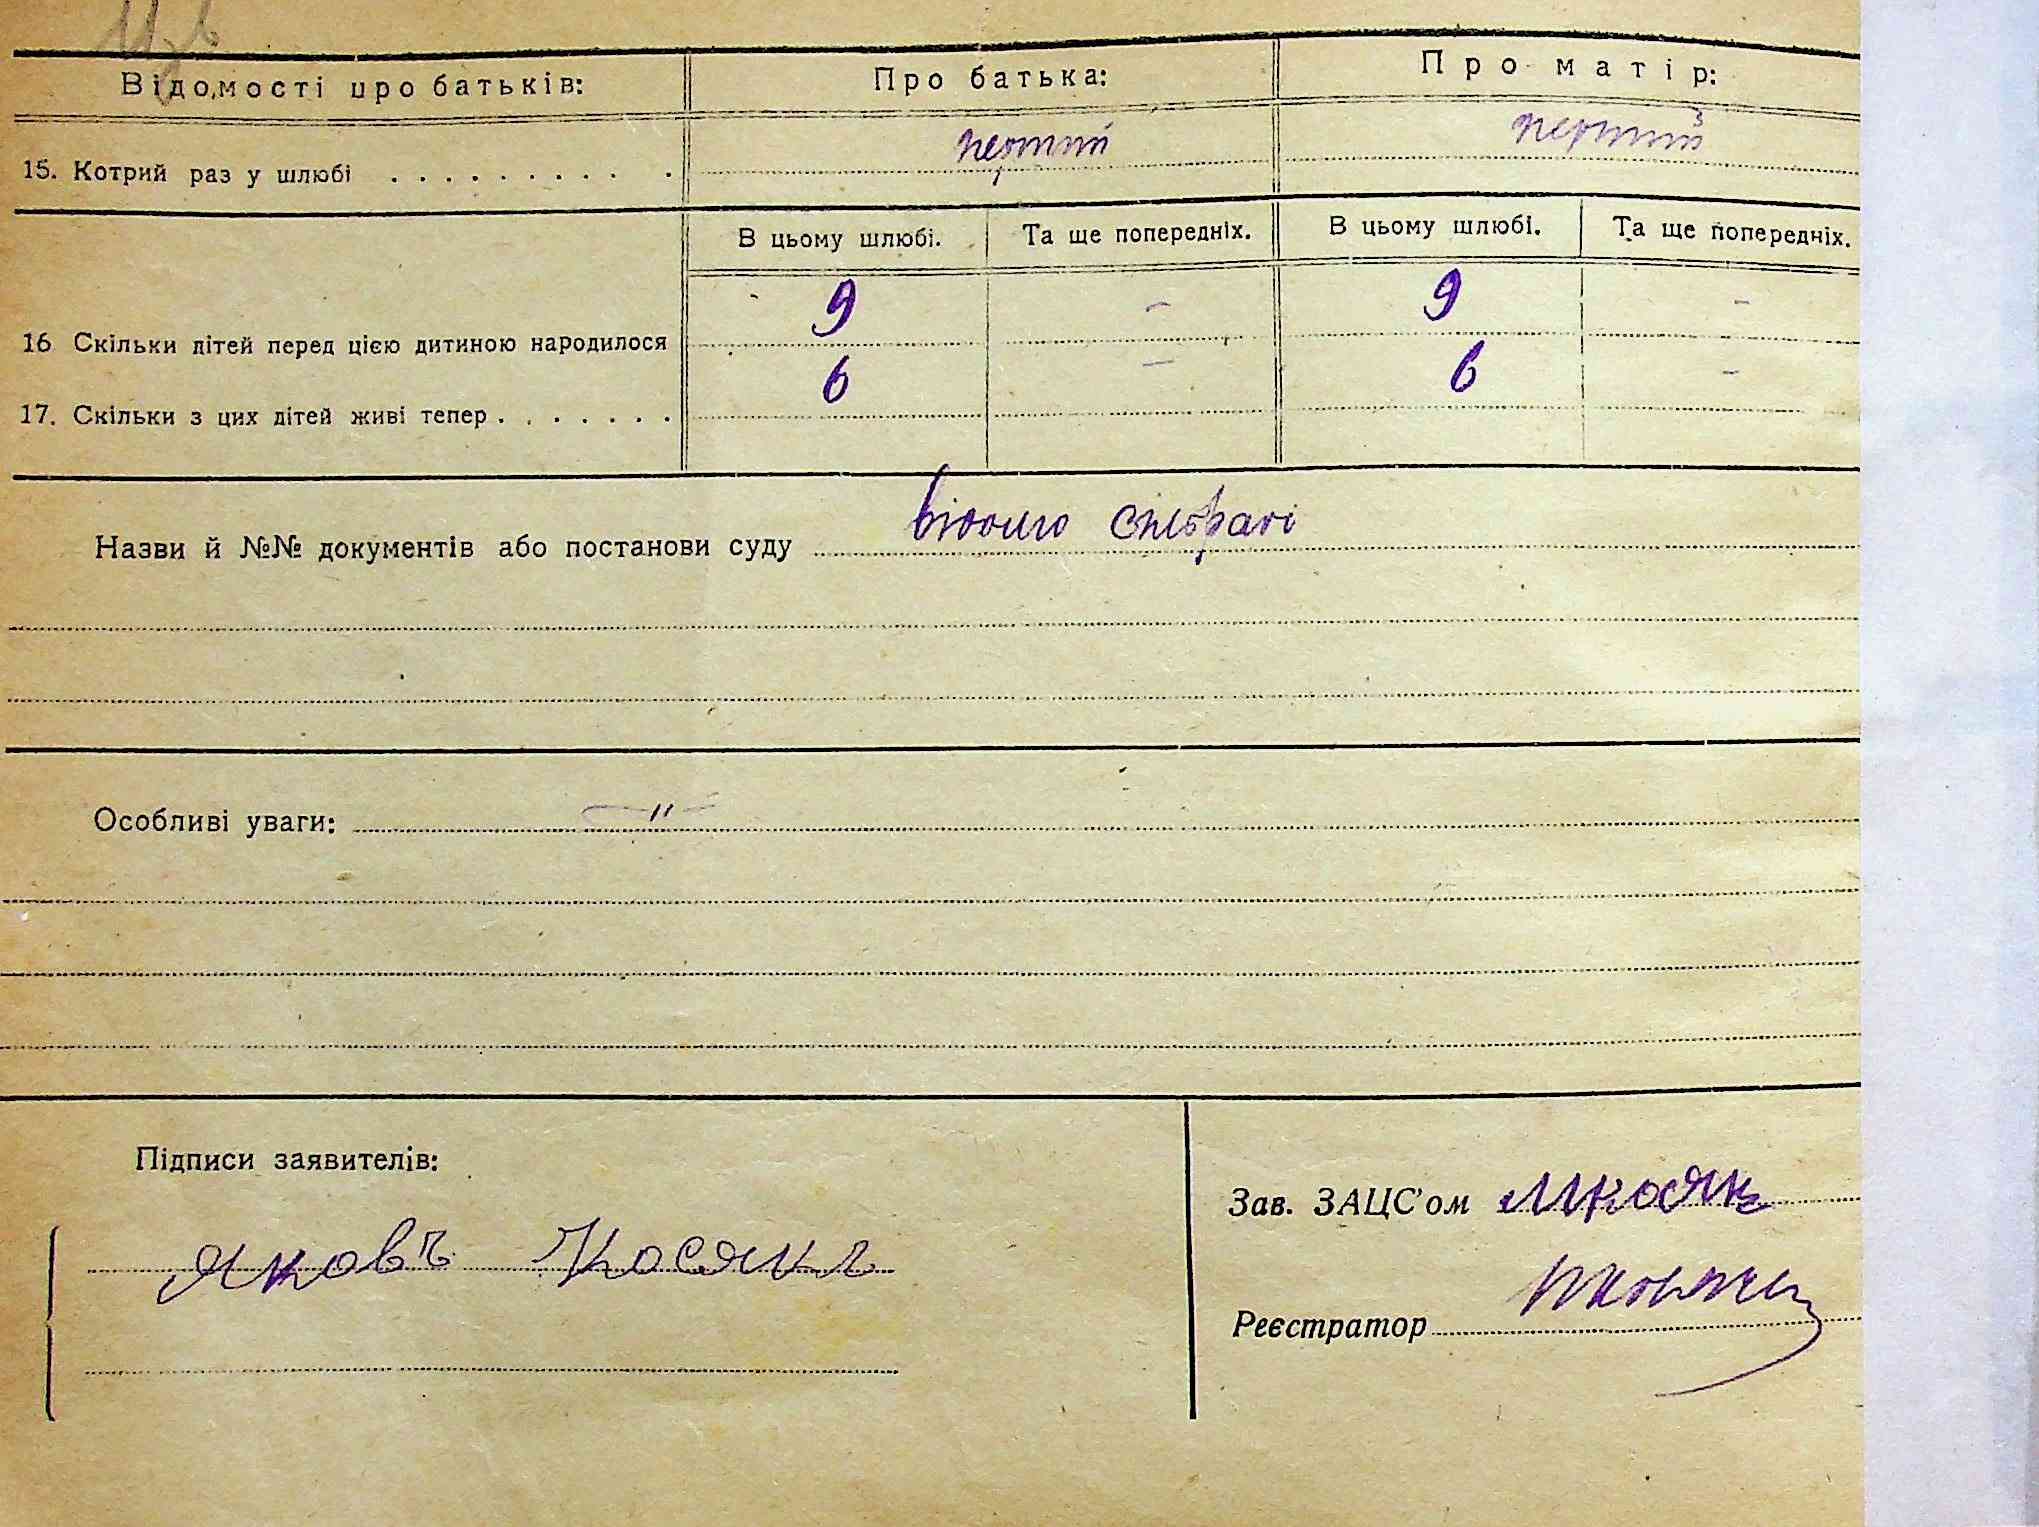 Відомості про батьків: Про батька: Про матір:
15. Котрий раз у шлюбі . . . . . . . . . . перший перший
В цьому шлюбі. Та ще попередніх. В цьому шлюбі. Та ще попередніх.
16 Скільки дітей перед цією дитиною народилося 9 - 9 -
17. Скільки з цих дітей живі тепер . . . . . . . 6 - 6 -
Назви й №№ документів або постанови суду відомо сільраді
Особливі уваги: —"—
Підписи заявителів:
Зав. ЗАЦС'ом
Яковъ Косякъ
Реєстратор